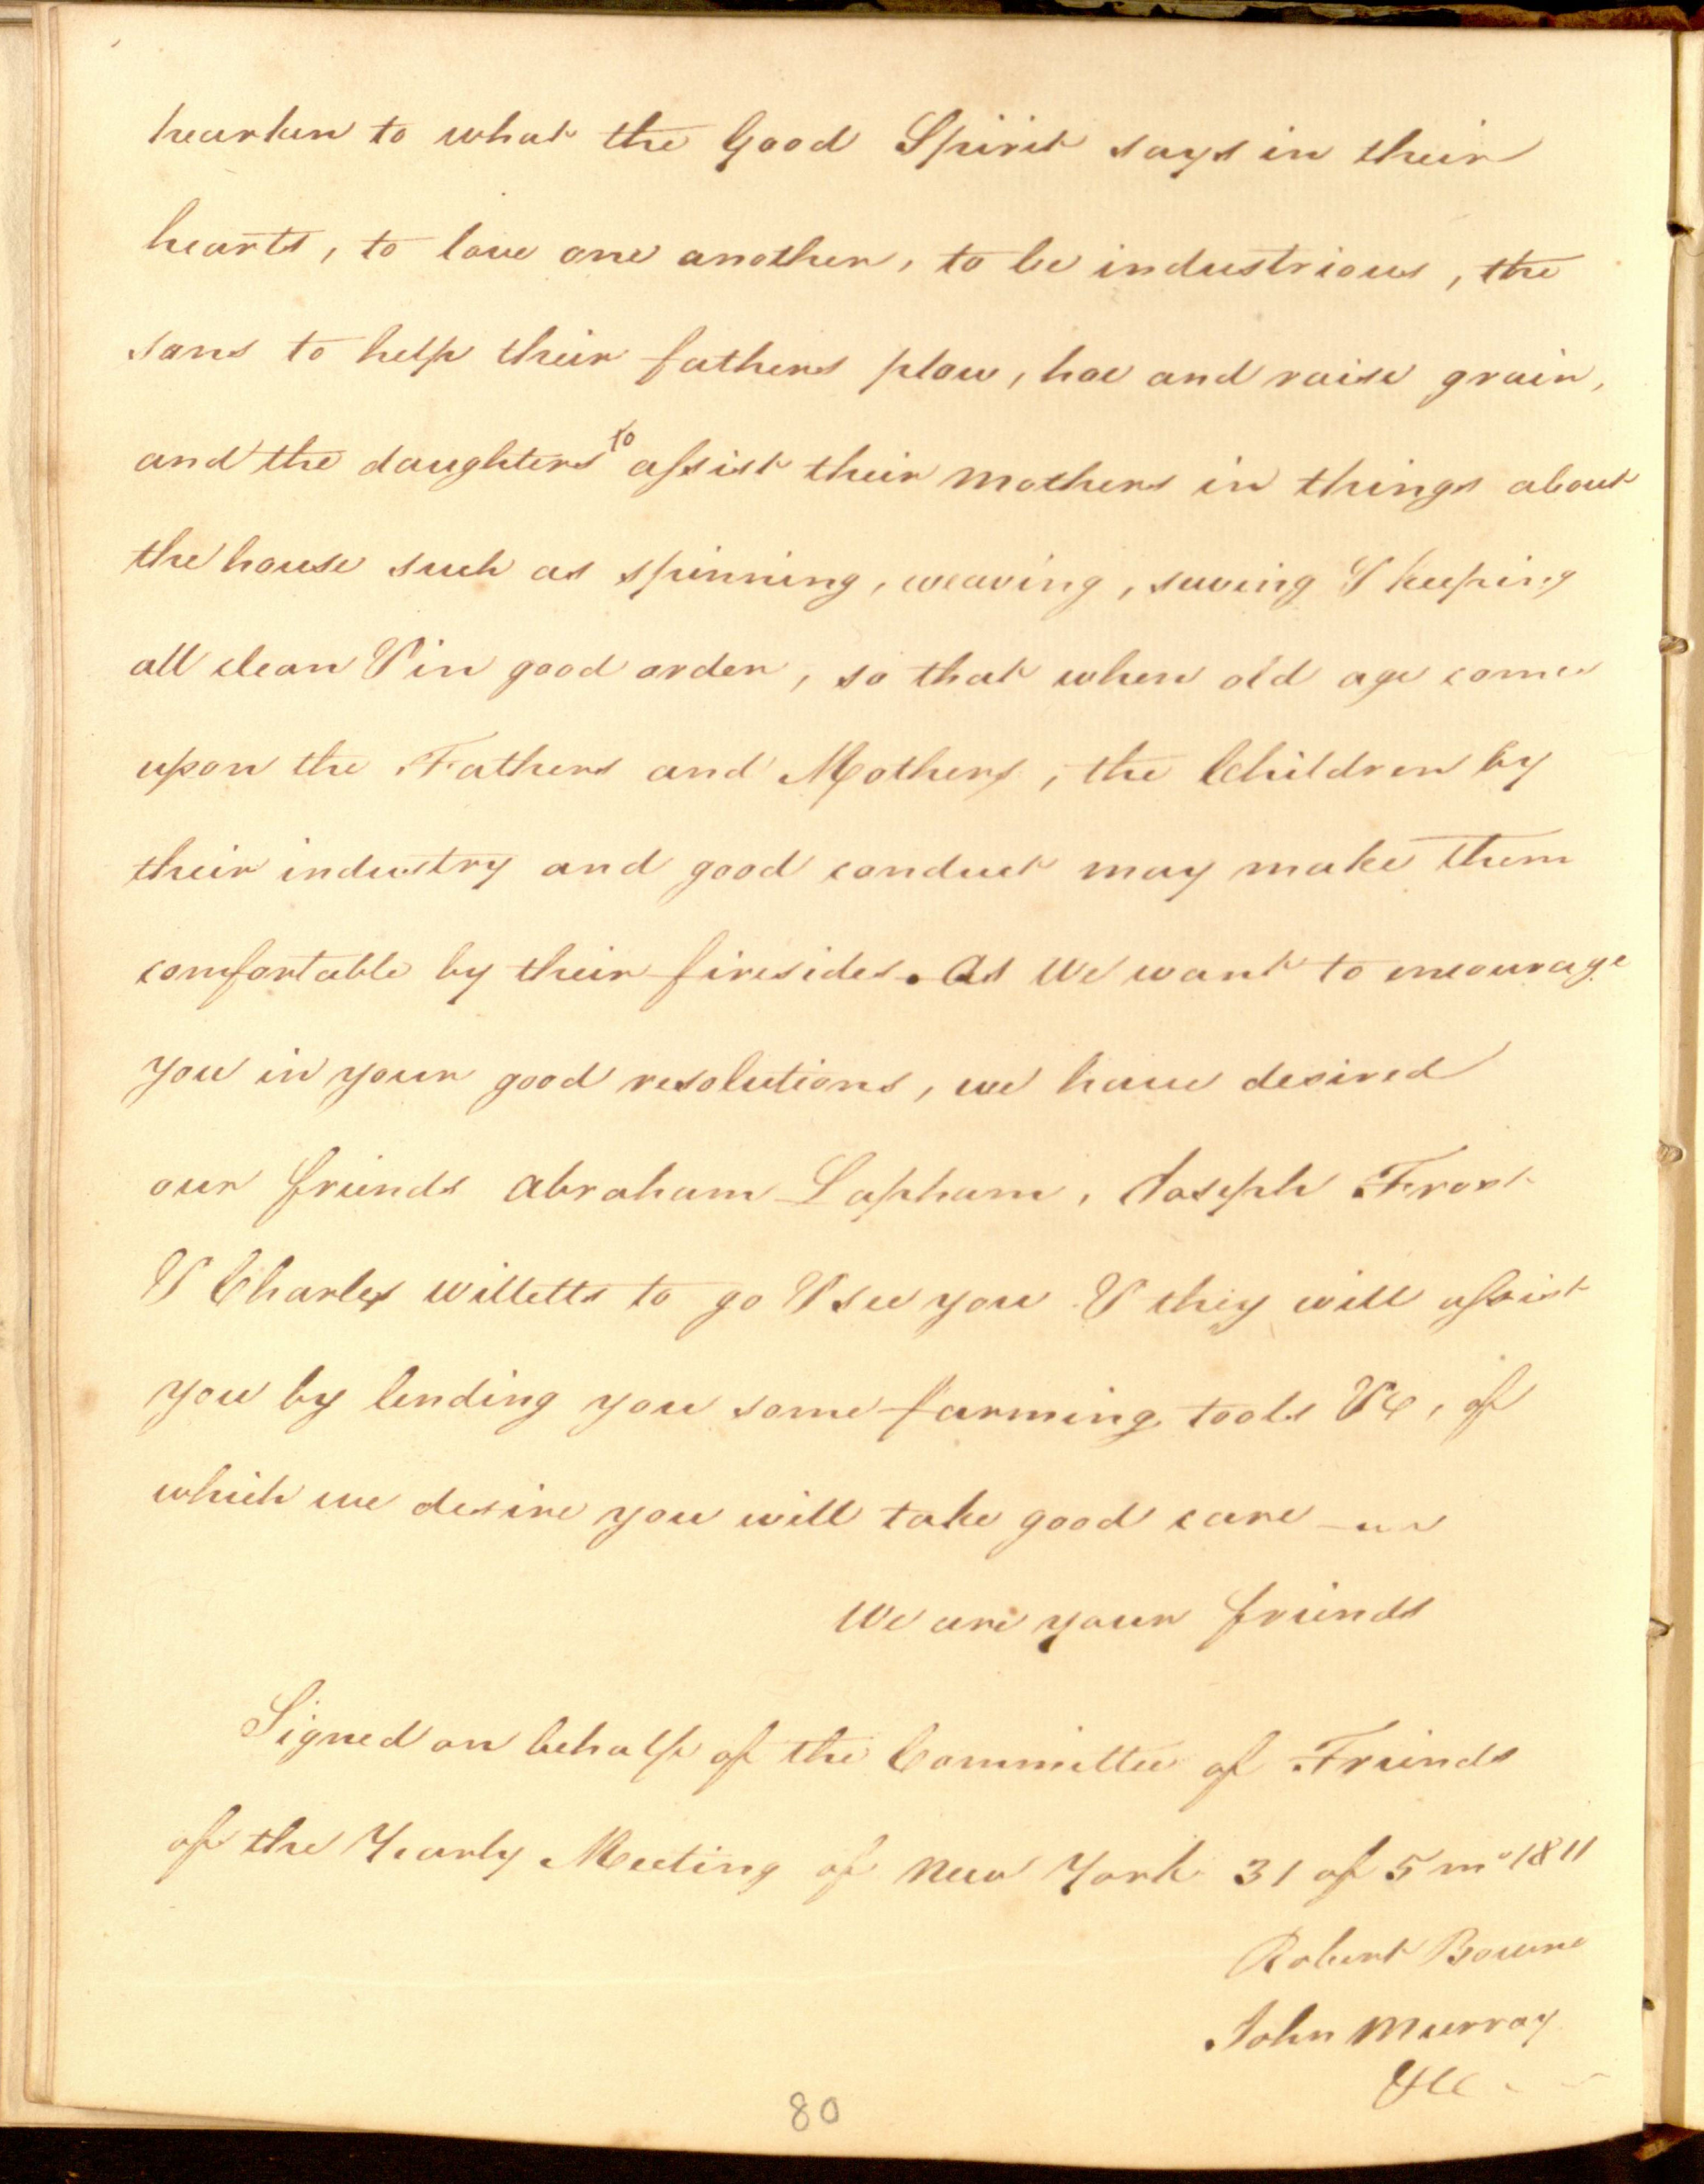 hearken to what the Good Spirit says in their
hearts, to love one another, to be industrious, the
sons to help their fathers plow, hoe and raise grain,
and the daughters to assist their mothers in things about
the house such as spinning, weaving, sewing & keeping
all clean & in good order, so that when old age comes
upon the Fathers and Mothers, the Children by
their industry and good conduct may make them
comfortable by their firesides. As We want to encourage
you in your good resolutions, we have desired
our friends Abraham Lapham, Joseph Frost
& Charles Willetts to go & see you & they will assist
you by lending you some farming tools &c, of
which we desire you will take good care
We are your friends
Signed on behalf of the Committee of Friends
of the Yearly Meeting of New York 31 of 5 mo 1811
Robert Bowne
John Murray
&c
80